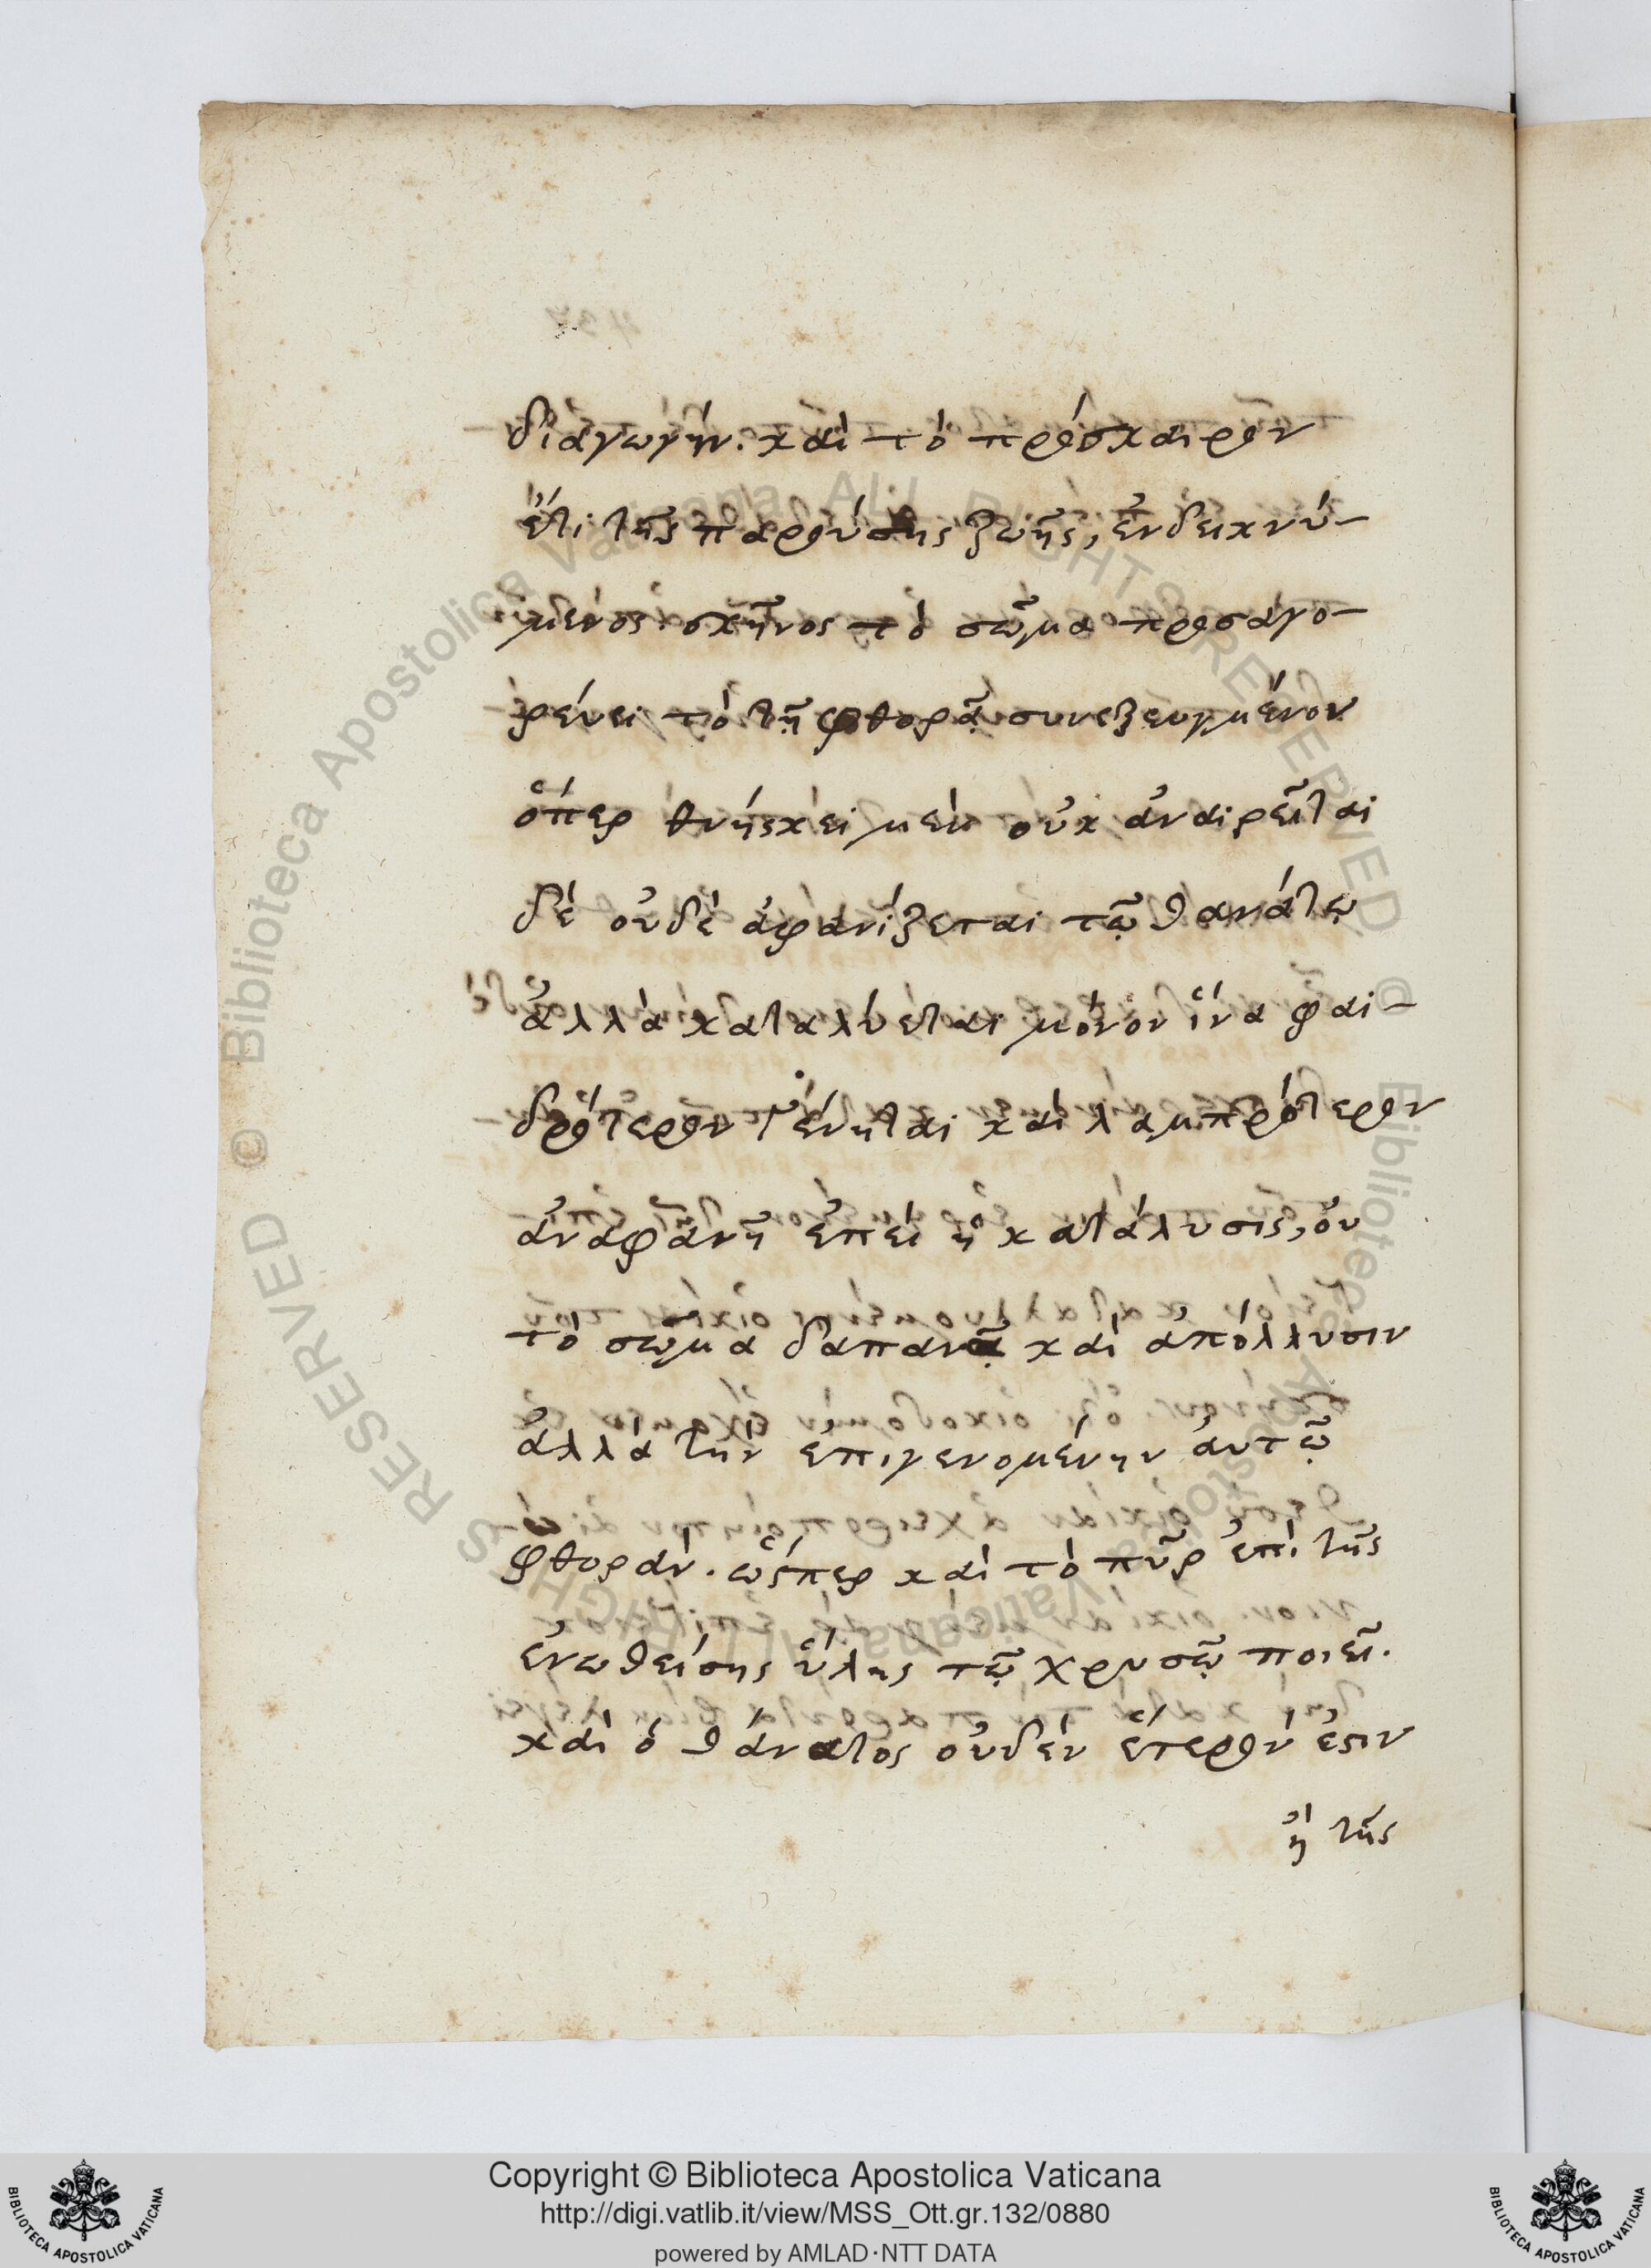 διαγωγήν. καὶ τὸ πρόσκαιρον
ἔτι τῆς παρούσης ζωῆς, ἐνδεικνύ-
μενος. σκῆνος τὸ σῶμα προσαγο-
ρεύει τὸ τῇ φθορᾷ συνεζευγμένον
ὅπερ θνήσκει μὲν οὐκ ἀναιρεῖται
δὲ οὐδὲ ἀφανίζεται τῷ θανάτῳ
ἀλλὰ καταλύεται μόνον ἵνα φαι-
δρότερον γένηται καὶ λαμπρότερον
ἀναφανῇ ἐπεὶ ἡ κατάλυσις, οὐ
τὸ σῶμα δαπανᾷ καὶ ἀπόλλυσιν
ἀλλὰ τὴν ἐπιγενομένην ἀυτῷ
φθοράν. ὥσπερ καὶ τὸ πῦρ ἐπὶ τῆς
ἑνωθείσης ὕλης τῷ χρυσῷ ποιεῖ.
καὶ ὁ θάνατος οὐδὲν ἕτερον ἐστιν
ἢ τῆς
Copyright © Biblioteca Apostolica Vaticana
http://digi.vatlib.it/view/MSS_Ott.gr.132/0880
powered by AMLAD·NTT DATA
BIBLIOTECA APOSTOLICA VATICANA
BIBLIOTECA APOSTOLICA VATICANA